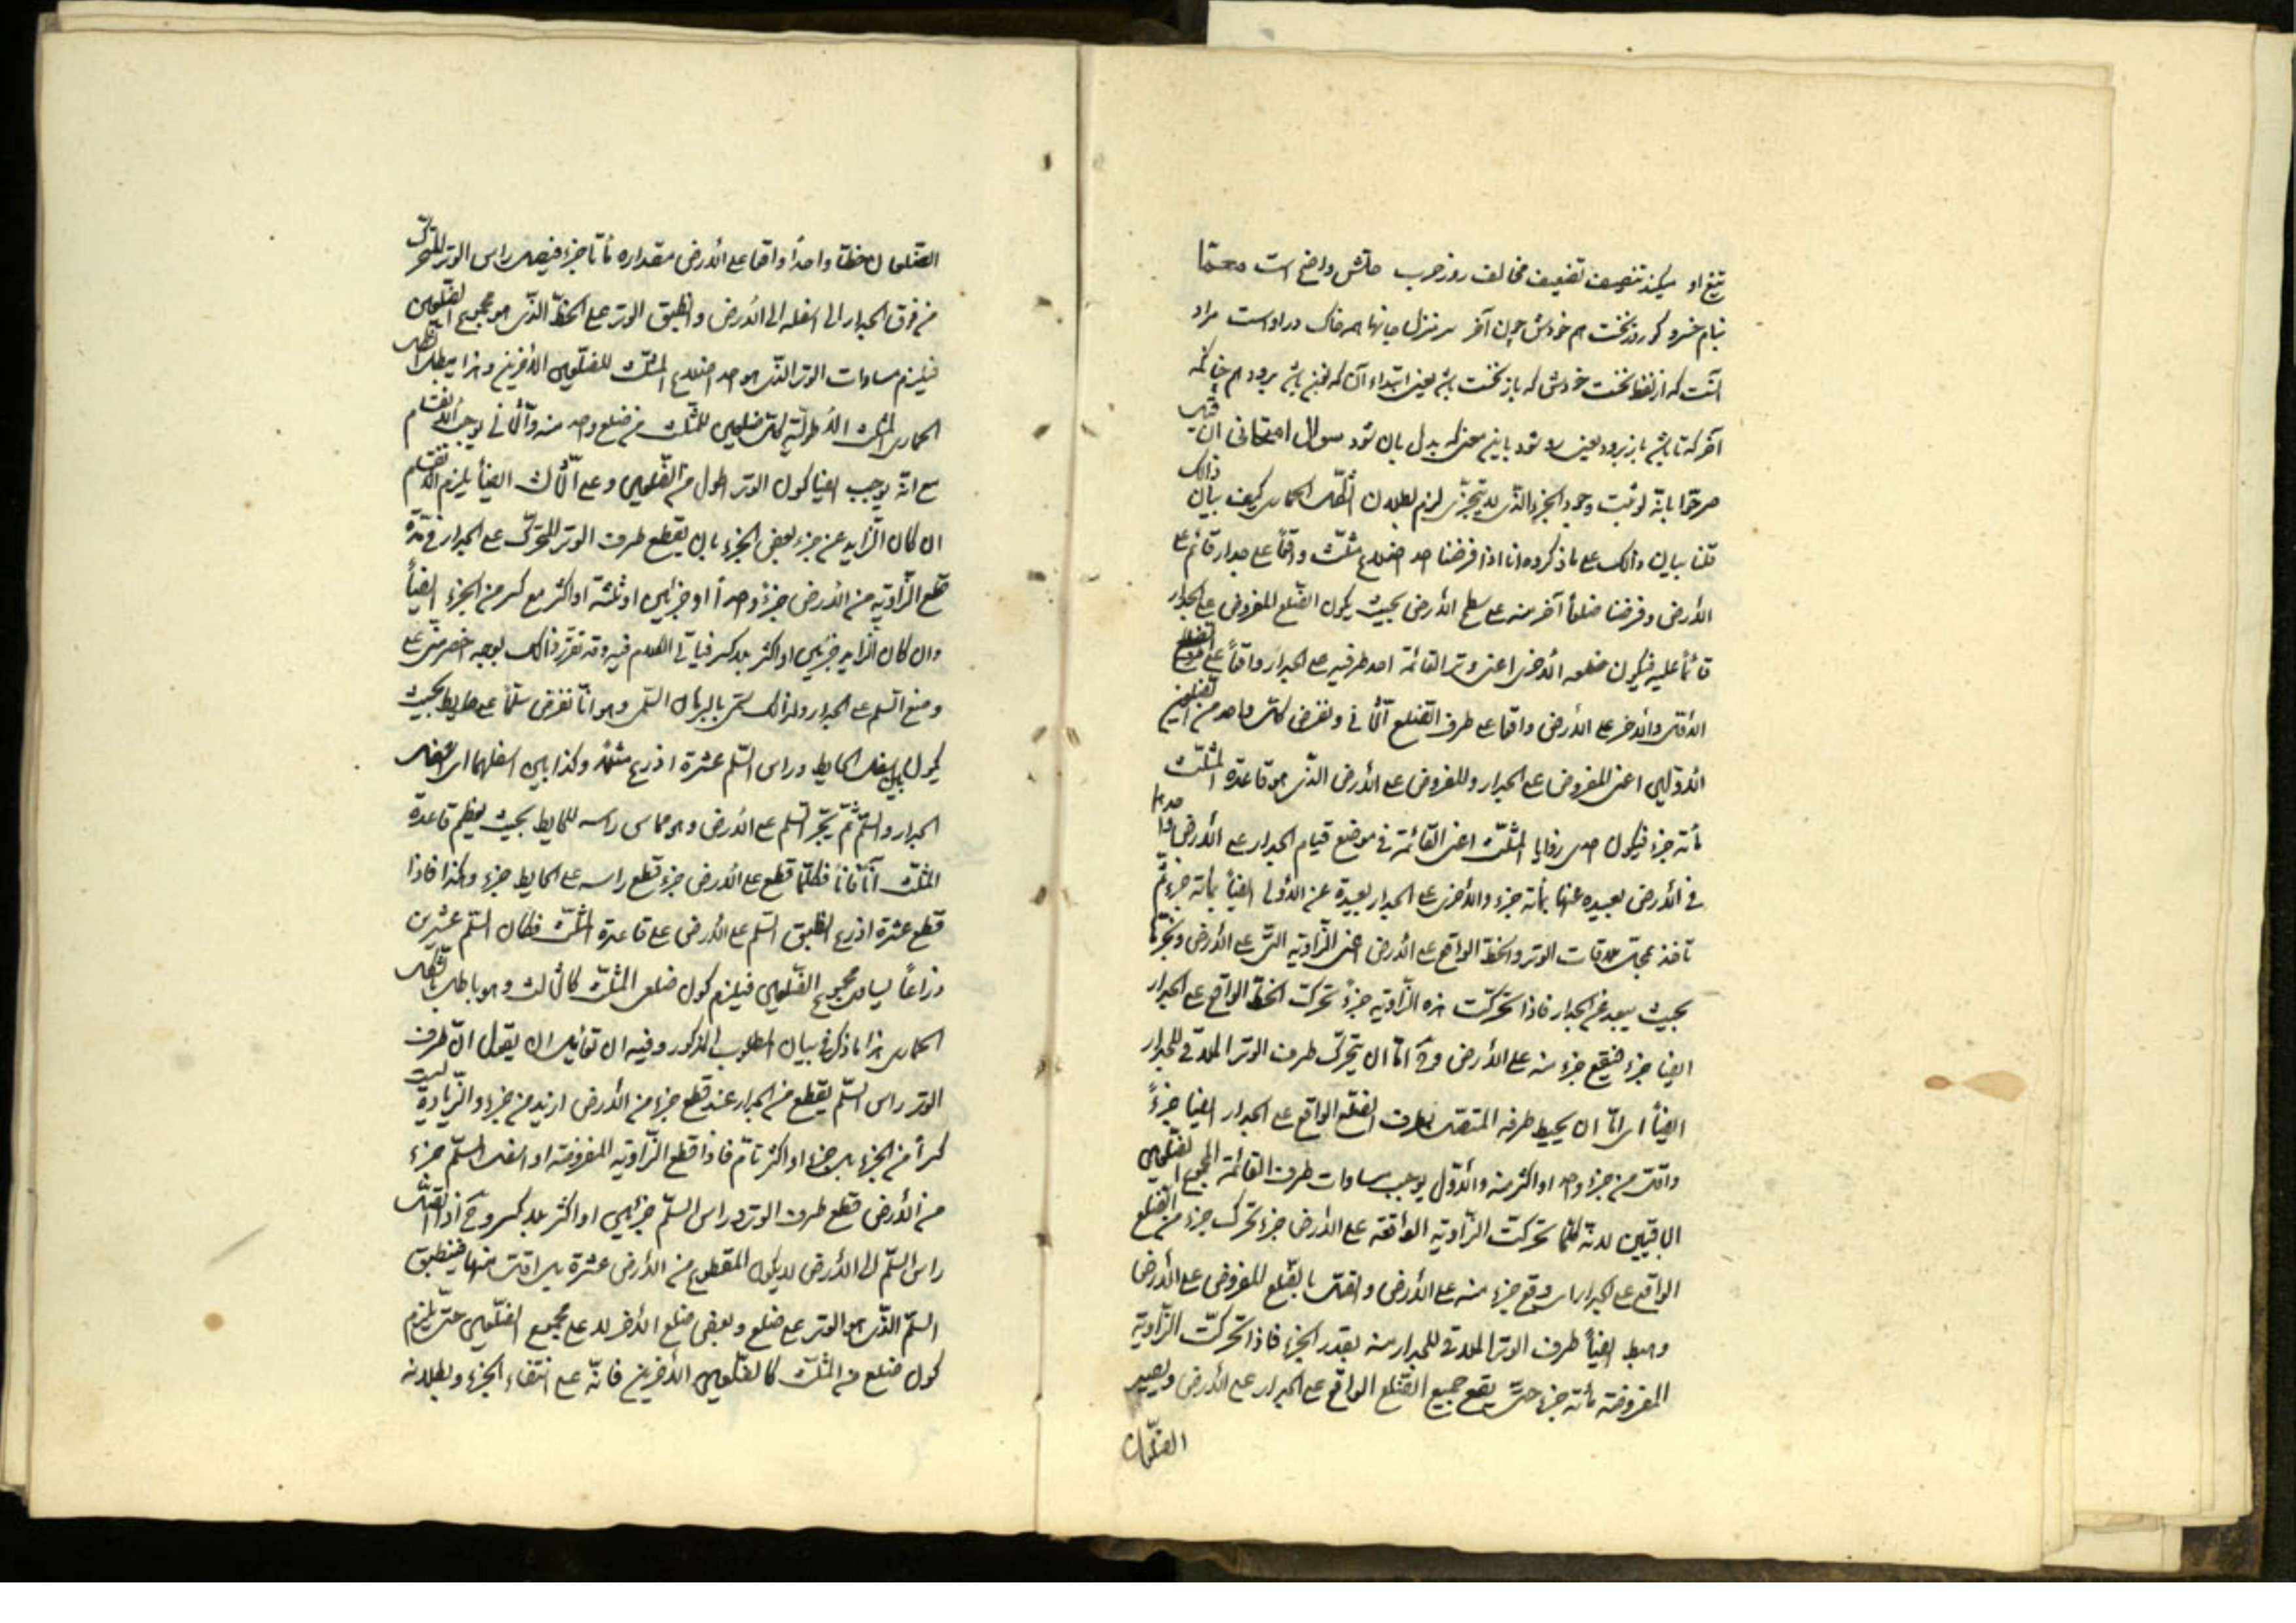 تیغ او میکند تنصیف تضعیف مخالف روز حرب حلش واضح است معما
بنام خسرو که روز نخست هم خودش چون آخر سر منزل جانها هم خاک در اوست مراد
آنست که از لفظ نخست خودش که باز نخست باشد یعنی ابتداء آن که نخ باشد برود هم چنانکه
آخر که تا باشد باز برود یعنی رو شود باین معنی که بدل بان شود سوال امتحانی ان قیل
صرحوا بانه لو ثبت وجود الجزء الذی لا یتجزی لزم بطلان الشکل الحماری کیف بیان ذالک
قلنا بیان ذالک علی ما ذکروه انا اذا فرضنا احد اضلاع مثلث واقعا علی جدار قائم علی
الارض وفرضنا ضلعا آخر منه علی سطح الارض بحیث یکون الضلع المفروض علی الجدار
قائما علیه فیکون ضلعه الاخری اعنی وتر القائمة احد طرفیه علی الجدار واقعا علی الضلع
الاول والاخر علی الارض واقعا علی طرف الضلع الثانی ونفرض کل واحد من الضلعین
الاولین اعنی المفروض علی الجدار والمفروض علی الارض الذی هو قاعدة المثلث
مأته جزء فیکون احدی زوایا المثلث اعنی القائمة فی موضع قیام الجدار علی الارض واحدیها
فی الارض بعیده عنها بمأته جزء والاخری علی الجدار بعیدة عن الاولی ایضا بمأته جزء ثم
تأخذ بمحل ملاقات الوتر والخط الواقع علی الارض اعنی الزاویه التی علی الارض ونجرها
بحیث یبعد عن الجدار فاذا تحرکت هذه الزاویه جزءً تحرکت الخط الواقع علی الجدار
ایضا جزء فیقع جزء منه علی الارض وح اما ان یتحرک طرف الوتر الملاقی للجدار
ایضاً ای اما ان یهبط طرفه المتصل بطرف الضلع الواقع علی الجدار ایضا جزءً
واقل من جزء واحد او اکثر منه والاول یوجب مساوات طرف القائمة لمجموع الضلعین
الباقیین لانه کلما تحرکت الزاویه الواقعه علی الارض جزء تحرک جزء من الضلع
الواقع علی الجدار ای وقع جزء منه علی الارض واتصل بالضلع المفروض علی الارض
وهبط ایضاً طرف الوتر الملاقی للجدار منه بقدر الجزء فاذا تحرکت الزاویة
المفروضة مأته جزء حتی یقع جمیع الضلع الواقع علی الجدار علی الارض ویصیر
الضلعان
الضلعان خطا واحداً واقعا علی الارض مقداره مأتا جزء فیصل راس الوتر المتحرک
من فوق الجدار الی اسفله الی الارض وانطبق الوتر علی الخط الذی هو مجموع الضلعین
فیلزم مساوات الوتر الذی هو احد اضلاع المثلث للضلعین الاخرین وهذا یبطل الشکل
الحماری المثبت الاطولیة کل ضلعین للمثلث من ضلع واحد منه والثانی یوجب الانقسام
مع انه یوجب ایضا کون الوتر اطول من الضلعین وعلی الثالث ایضاً یلزم الانقسام
ان کان الزاید عن جزء بعض الجزء بان یقطع طرف الوتر المتحرک علی الجدار فی مدة
قطع الزاویه من الارض جزءً واحداً او جزئین او ثلثة او اکثر مع کسر من الجزء ایضاً
وان کان الزاید جزئین او اکثر بلا کسر فیاتی الکلام فیه وقد تقرر ذالک بوجه اخصر مبنی علی
وضع السلم علی الجدار ولذالک سمی بالبرهان السلمی وهو انا نفرض سلما علی حایط بحیث
یکون بین اسفل الحایط وراس السلم عشرة اذرع مثلا وکذا بین اسفلهما ای اسفل
الجدار والسلم ثم یجر السلم علی الارض وهو مماس راسه للحایط بحیث یعظم قاعدة
المثلث آناً فاناً فکلما قطع علی الارض جزء قطع راسه علی الحایط جزء وهکذا فاذا
قطع عشرة اذرع انطبق السلم علی الارض علی قاعدة المثلث فکان السلم عشرین
ذراعاً لیساوی مجموع الضلعین فیلزم کون ضلعی المثلث کالثالث وهو باطل بالشکل
الحماری هذا ما ذکر فی بیان المطلوب المذکور وفیه ان لقائل ان یقول ان طرف
الوتر راس السلم یقطع من الجدار عند قطع جزء من الارض ازید من جزء والزیادة لیست
کسراً من الجزء بل جزء او اکثر تام فاذا قطع الزاویه المفروضه او اسفل السلم جزء
من الارض قطع طرف الوتر وراس السلم جزئین او اکثر بلا کسر وح اذا اتصل
راس السلم الی الارض لا یکون المقطوع من الارض عشرة بل اقل منها فینطبق
السلم الذی هو الوتر علی ضلع وبعض ضلع الاخر لا علی مجموع الضلعین حتی یلزم
کون ضلع من المثلث کالضلعین الاخرین فانه علی انتفاء الجزء وبطلانه